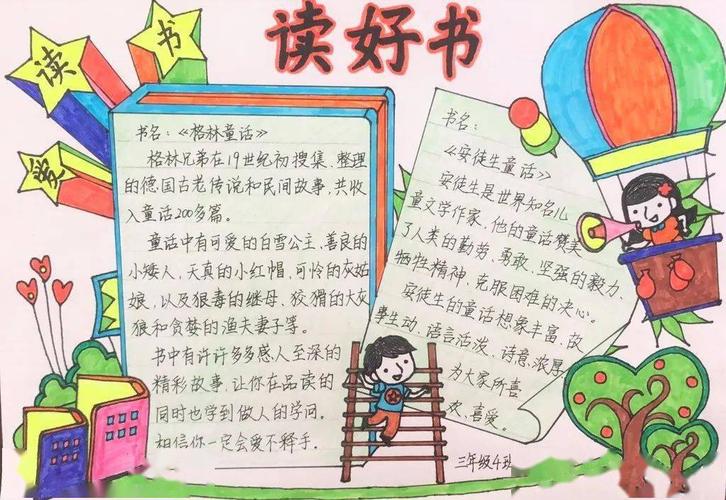 读好书
爱
读
书
书名：《格林童话》
格林兄弟在19世纪初搜集、整理
的德国古老传说和民间故事，共收
入童话200多篇。
童话中有可爱的白雪公主、善良的
小矮人，天真的小红帽，可怜的灰姑
娘，以及狠毒的继母、狡猾的大灰
狼和贪婪的渔夫妻子等。
书中有许许多多感人至深的
精彩故事，让你在品读的
同时也学到做人的学问。
相信你一定会爱不释手。
书名：
《安徒生童话》
安徒生是世界知名儿
童文学作家，他的童话赞美
了人类的勤劳、勇敢、坚强的毅力、
牺牲精神、克服困难的决心。
安徒生的童话想象丰富，故
事生动、语言活泼，诗意浓厚
为大家所喜
欢、喜爱。
三年级4班